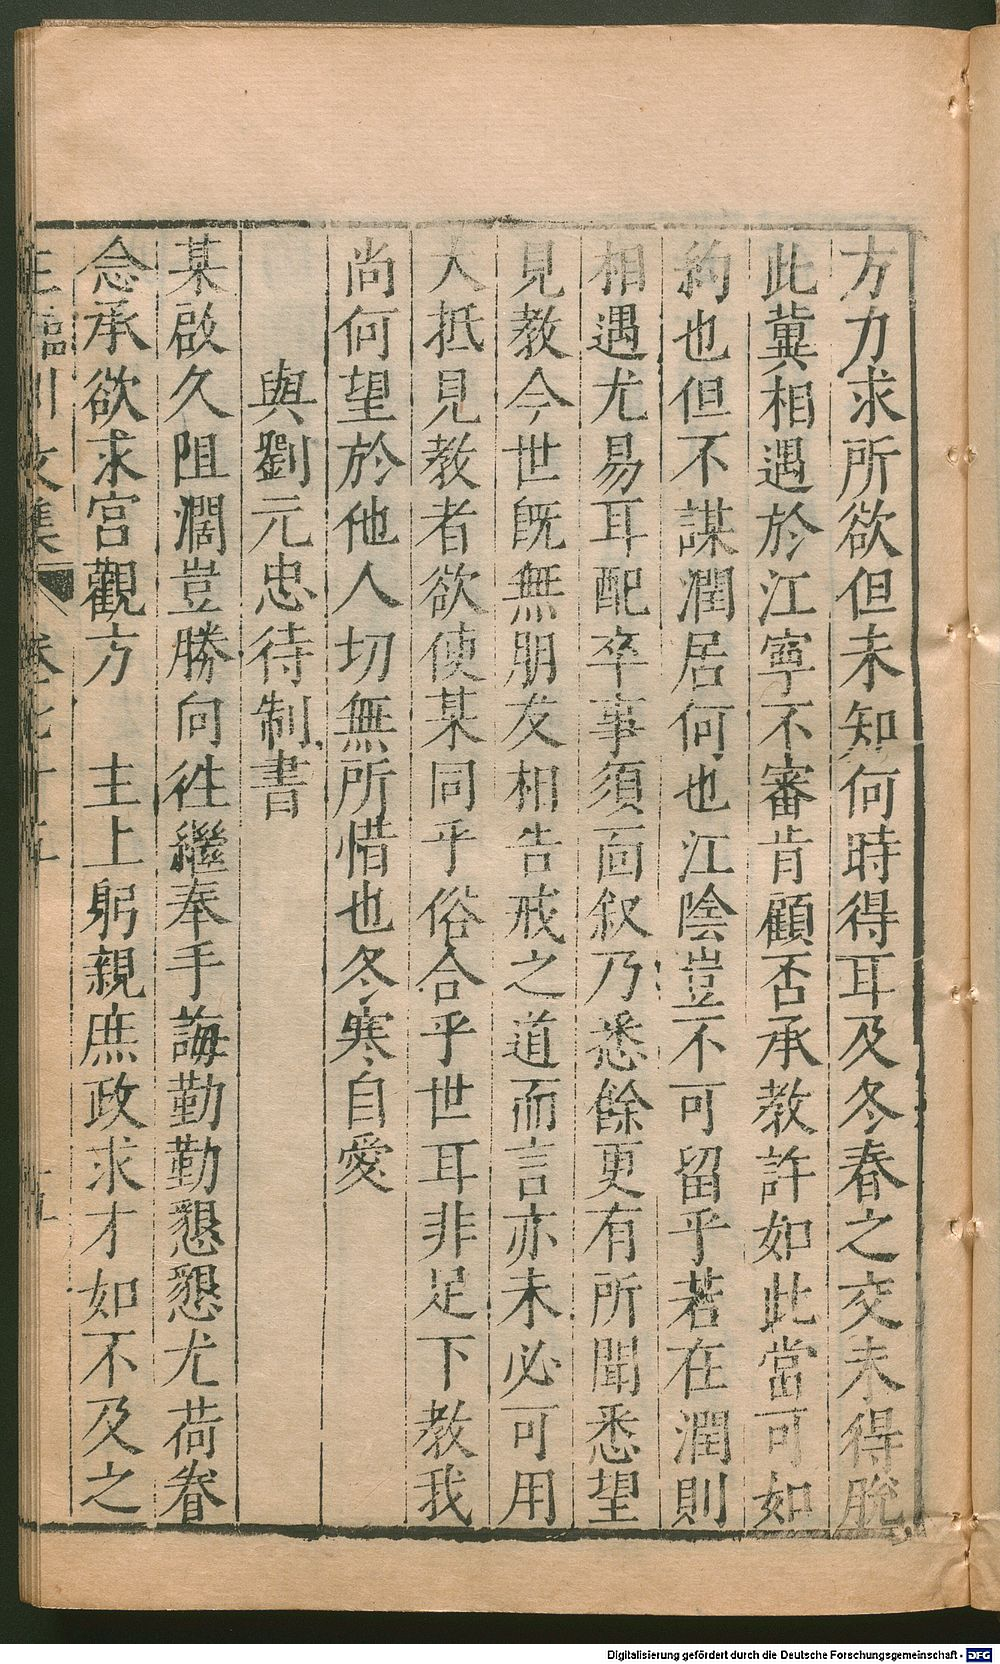 方力求所欲但未知何時得耳及冬春之交未得脫
此冀相遇於江寧不審肯顧否承教許如此當可如
約也但不謀潤居何也江陰豈不可留乎若在潤則
相遇尤易耳配卒事須面叙乃悉餘更有所聞悉望
見教今世既無朋友相告戒之道而言亦未必可用
大抵見教者欲使某同乎俗合乎世耳非足下教我
尚何望於他人切無所惜也冬寒自愛
與劉元忠待制書
某啟久阻濶豈勝向徃繼奉手誨勤勤懇懇尤荷眷
念承欲求宮觀方　主上躬親庶政求才如不及之
王臨川文集　卷七十五　十五
Digitalisierung gefördert durch die Deutsche Forschungsgemeinschaft - DFG